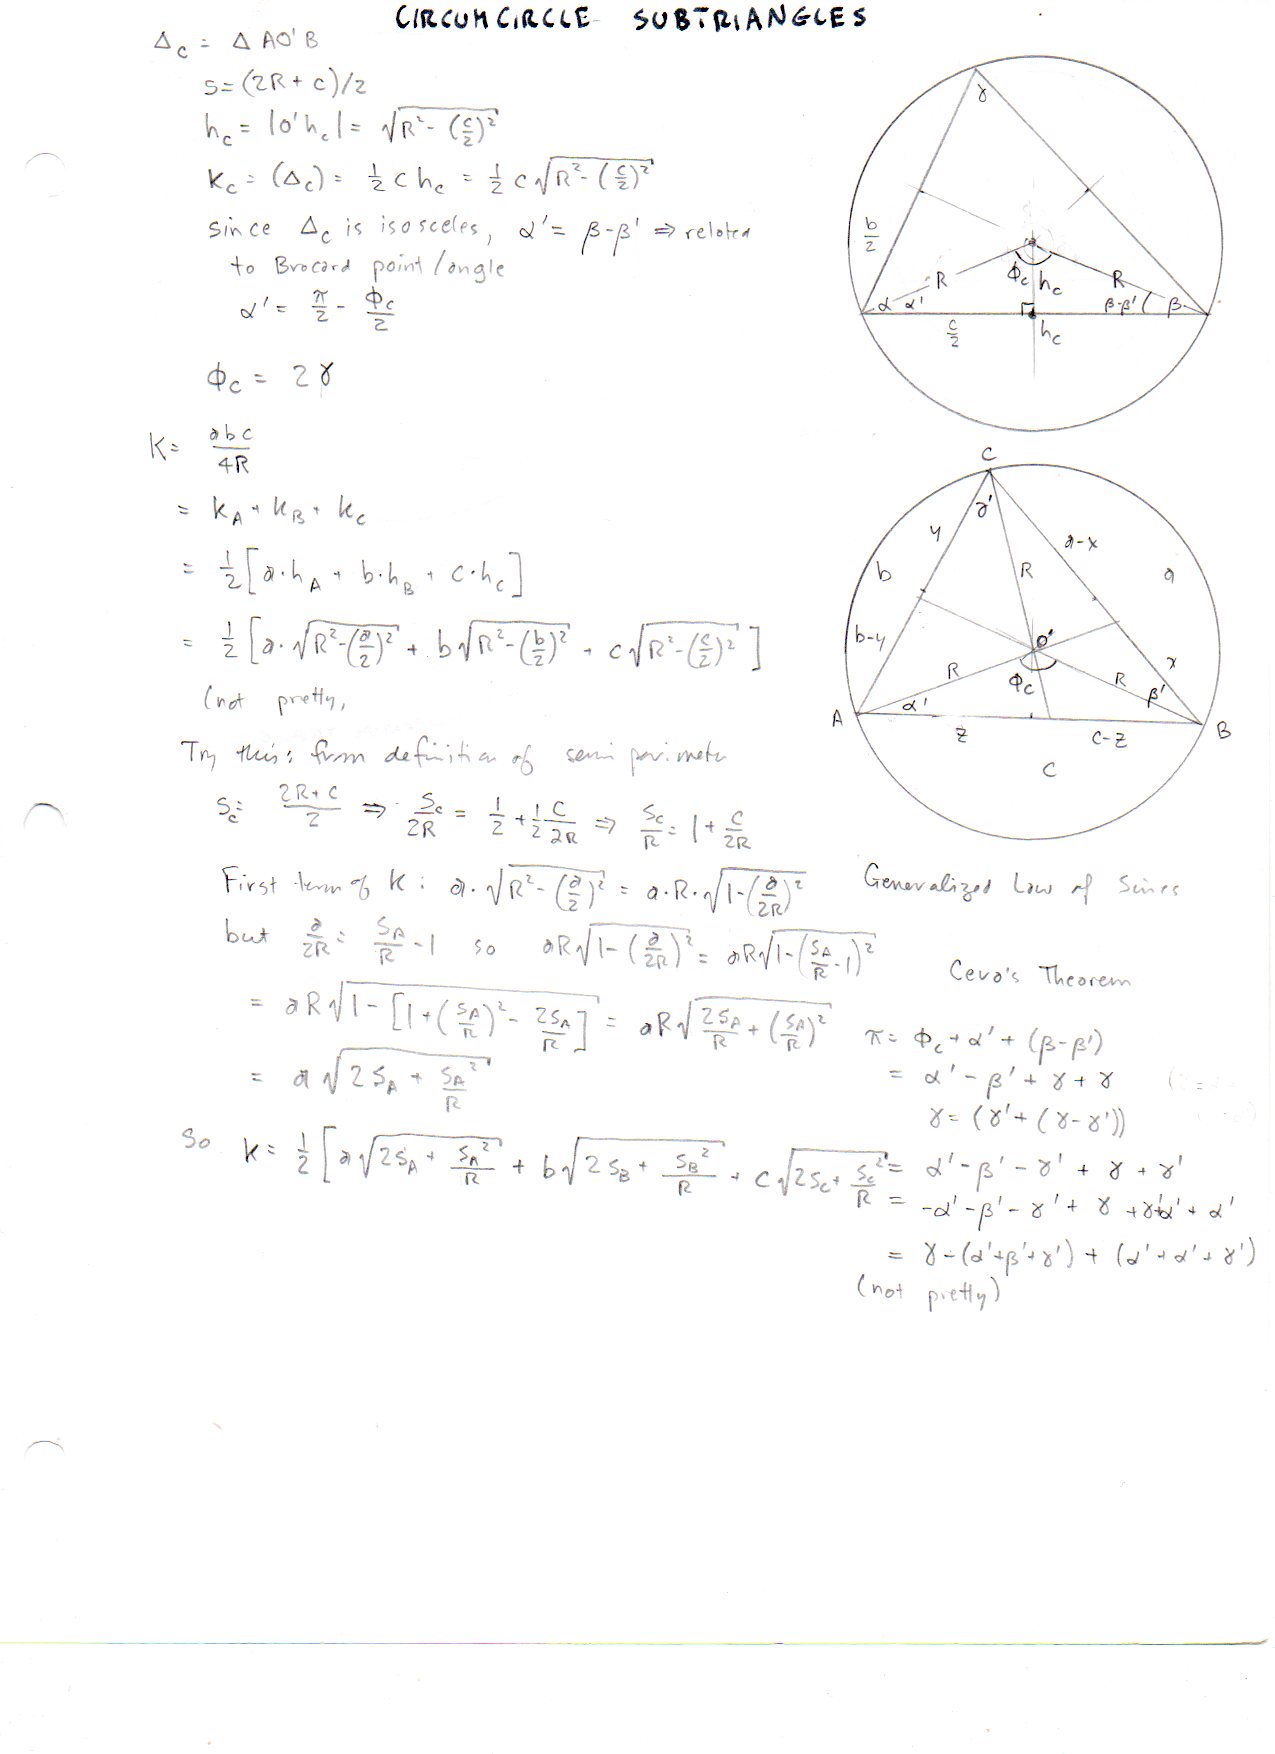 CIRCUMCIRCLE SUBTRIANGLES
Δc = Δ AO'B
s = (2R + c)/2
hc = |O'hc| = √(R² - (c/2)²)
Kc = (Δc) = 1/2 c hc = 1/2 c √(R² - (c/2)²)
since Δc is isosceles, α' = β-β' ⇒ related
to Brocard point/angle
α' = π/2 - Φc/2
Φc = 2γ
K = abc/4R
= KA + KB + Kc
= 1/2 [a·hA + b·hB + c·hc]
= 1/2 [a·√(R²-(a/2)²) + b√(R²-(b/2)²) + c√(R²-(c/2)²)]
(not pretty,
Try this: from definition of semi perimeter
Sc = (2R+c)/2 ⇒ Sc/2R = 1/2 + 1/2 c/2R ⇒ Sc/R = 1 + c/2R
First term of K: a·√(R²-(a/2)²) = a·R·√(1-(a/2R)²)
but a/2R = SA/R - 1 so aR√(1-(a/2R)²) = aR√(1-(SA/R - 1)²)
= aR√(1-[1+(SA/R)² - 2SA/R]) = aR√(2SA/R + (SA/R)²)
= a√(2SA + SA²/R)
So K = 1/2 [a√(2SA + SA²/R) + b√(2SB + SB²/R) + c√(2Sc + Sc²/R)
γ
b/2
R
Φc
hc
R
α α'
β-β'
β
c/2
hc
C
γ'
y
a-x
b
R
a
b-y
O'
x
R
Φc
R
β'
α'
A
z
c-z
B
c
Generalized Law of Sines
Ceva's Theorem
π = Φc + α' + (β-β')
= α' - β' + γ + γ
γ = (γ' + (γ-γ'))
= α' - β' - γ' + γ + γ'
= -α' - β' - γ' + γ + γ' + α' + α'
= γ - (α'+β'+γ') + (α' + α' + γ')
(not pretty)